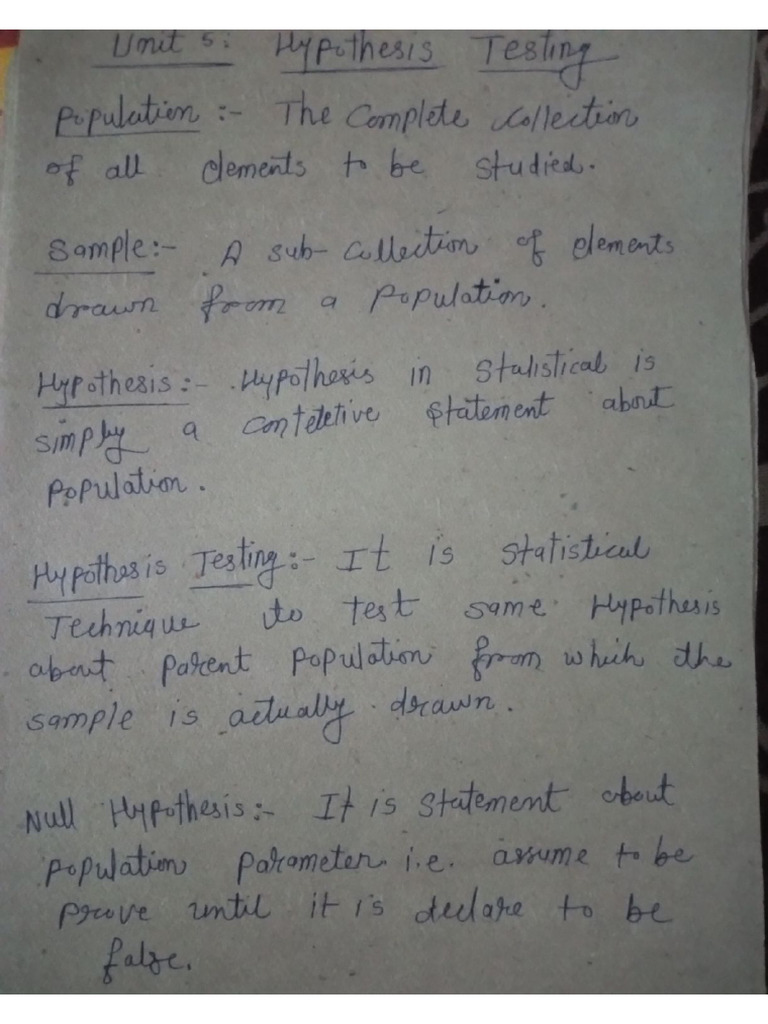 Unit 5: Hypothesis Testing
Population :- The Complete Collection
of all elements to be studied.
Sample:- A sub-Collection of elements
drawn from a population.
Hypothesis :- Hypothesis in Statistical is
simply a contetetive statement about
population.
Hypothesis Testing:- It is statistical
Technique to test same Hypothesis
about parent population from which the
sample is actually drawn.
Null Hypothesis:- It is statement about
population parameter i.e. assume to be
prove until it is declare to be
false.